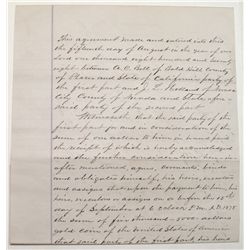 This agreement made and entered into this
fifteenth day of August in the year of our
Lord one thousand eight hundred and seventy
eight between A. C. Bell of Gold Hill County
of Placer and State of California party of
the first part and J. L. Holland of Nevada
City County of Nevada and State afore-
said party of the second part
Witnesseth that the said party of the
first part for and in consideration of the
sum of one dollar to him in hand paid
the receipt of which is hereby acknowledged
and the further consideration herein-
after mentioned agrees, covenants, binds
and obligates himself, his heirs, executors
and assigns that upon the payment to him, his
heirs, executors or assigns on or before the 15th
day of September at 6 o'clock P.M. A.D. 1878
the sum of five thousand 5000 dollars
gold coin of the United States of America
that said party of the first part his heirs